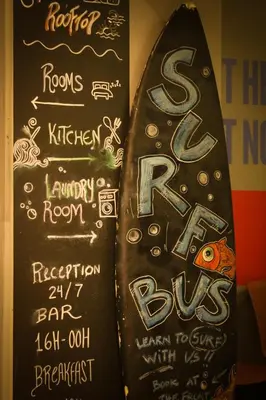 Rooftop
Rooms
Kitchen
Laundry
Room
Reception
24/7
Bar
16H-00H
Breakfast
SURF
BUS
Learn to (surf)
with us!!
Book at
the